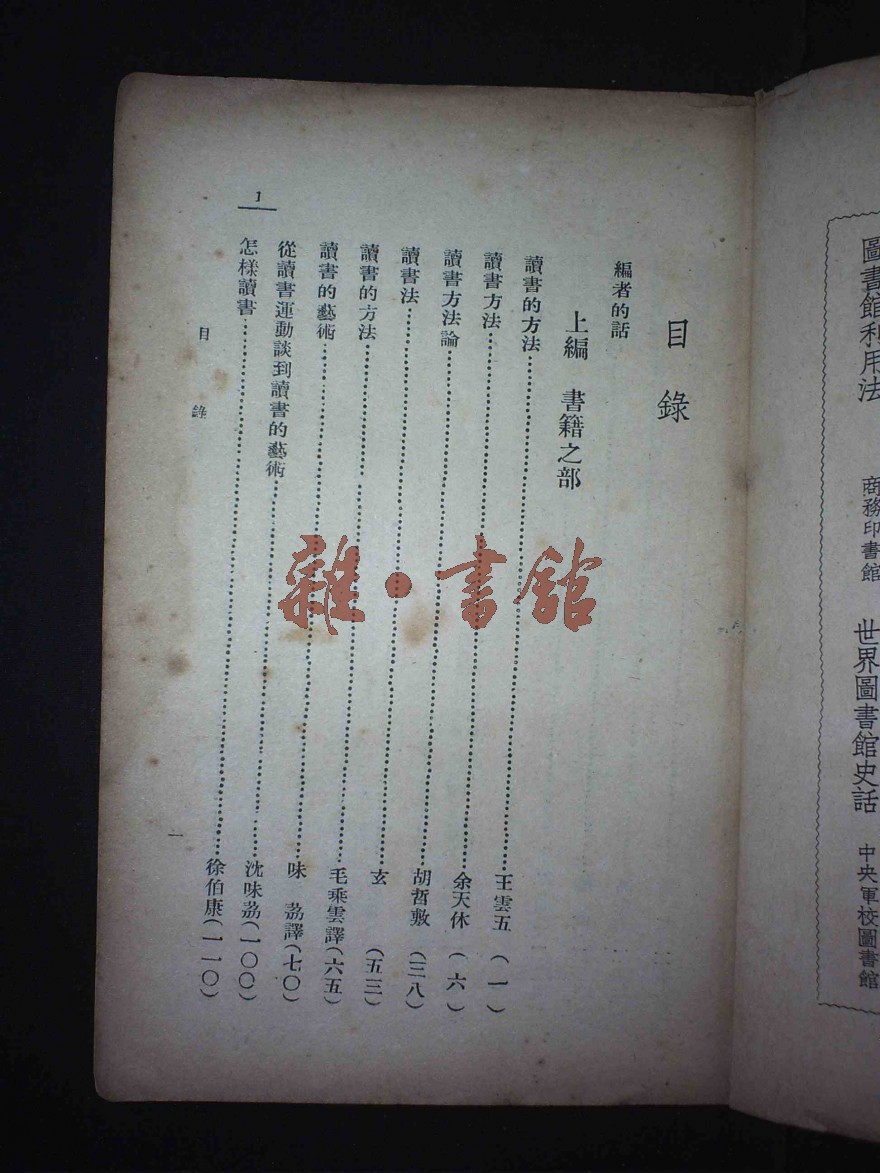 圖書館利用法 商務印書館 世界圖書館史話 中央軍校圖書館
目錄
編者的話
上編 書籍之部
讀書的方法……王雲五(一)
讀書方法……余天休(六)
讀書方法論……胡哲敷(三八)
讀書法……玄(五三)
讀書的方法……毛乘雲譯(六五)
讀書的藝術……味荔譯(七〇)
從讀書運動談到讀書的藝術……沈味荔(一〇〇)
怎樣讀書……徐伯康(一一〇)
1
目錄
一
雜·書館